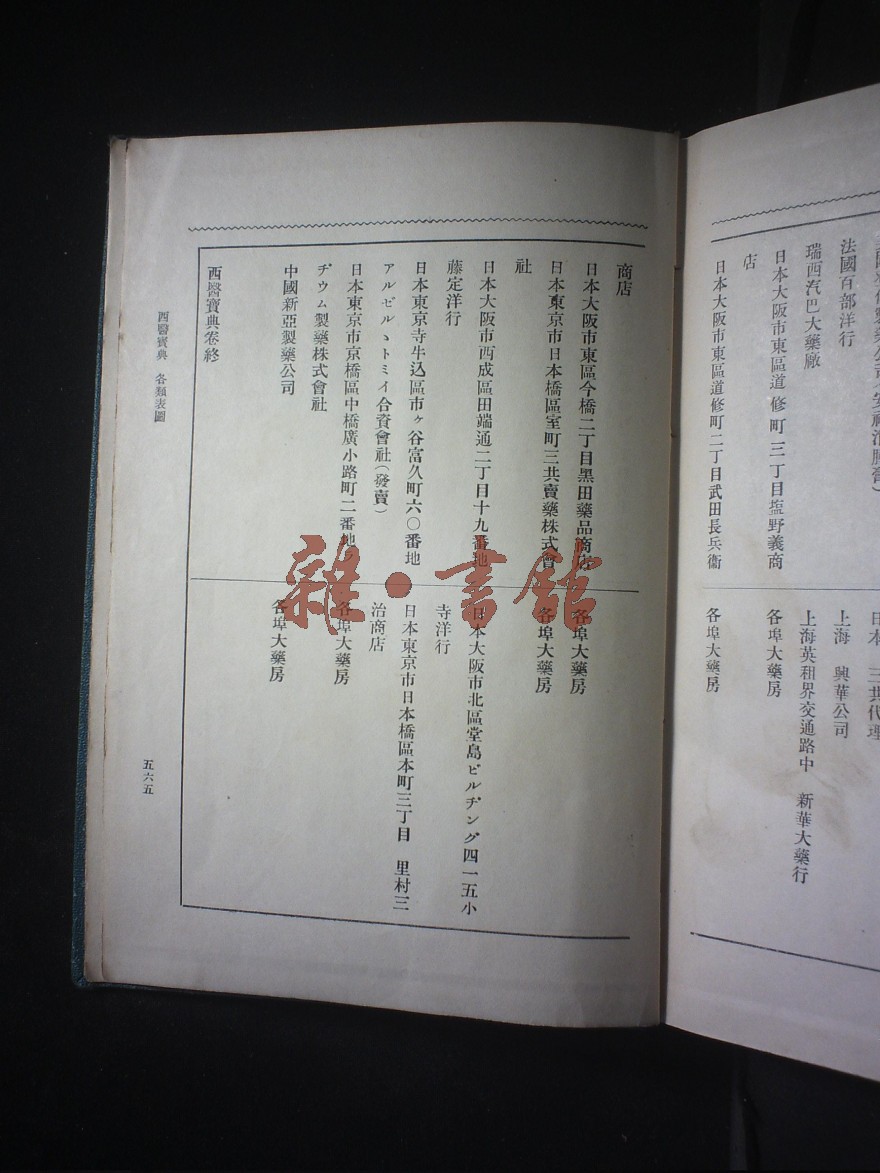 法國百部洋行
瑞西汽巴大藥廠
日本大阪市東區道修町三丁目塩野義商
店
日本大阪市東區道修町二丁目武田長兵衞
日本 三共代理
上海 興華公司
上海英租界交通路中 新華大藥行
各埠大藥房
各埠大藥房
商店
日本大阪市東區今橋二丁目黑田藥品商店
日本東京市日本橋區室町三共賣藥株式會
社
日本大阪市西成區田端通二丁目十九番地
藤定洋行
日本東京寺牛込區市ヶ谷富久町六〇番地
アルゼルヽトミイ合資會社(發賣)
日本東京市京橋區中橋廣小路町二番地
ヂウム製藥株式會社
中國新亞製藥公司
西醫寶典卷終
各埠大藥房
各埠大藥房
日本大阪市北區堂島ビルヂング四一五小
寺洋行
日本東京市日本橋區本町三丁目 里村三
治商店
各埠大藥房
各埠大藥房
西醫寶典 各類表圖
五六五
雜·書館